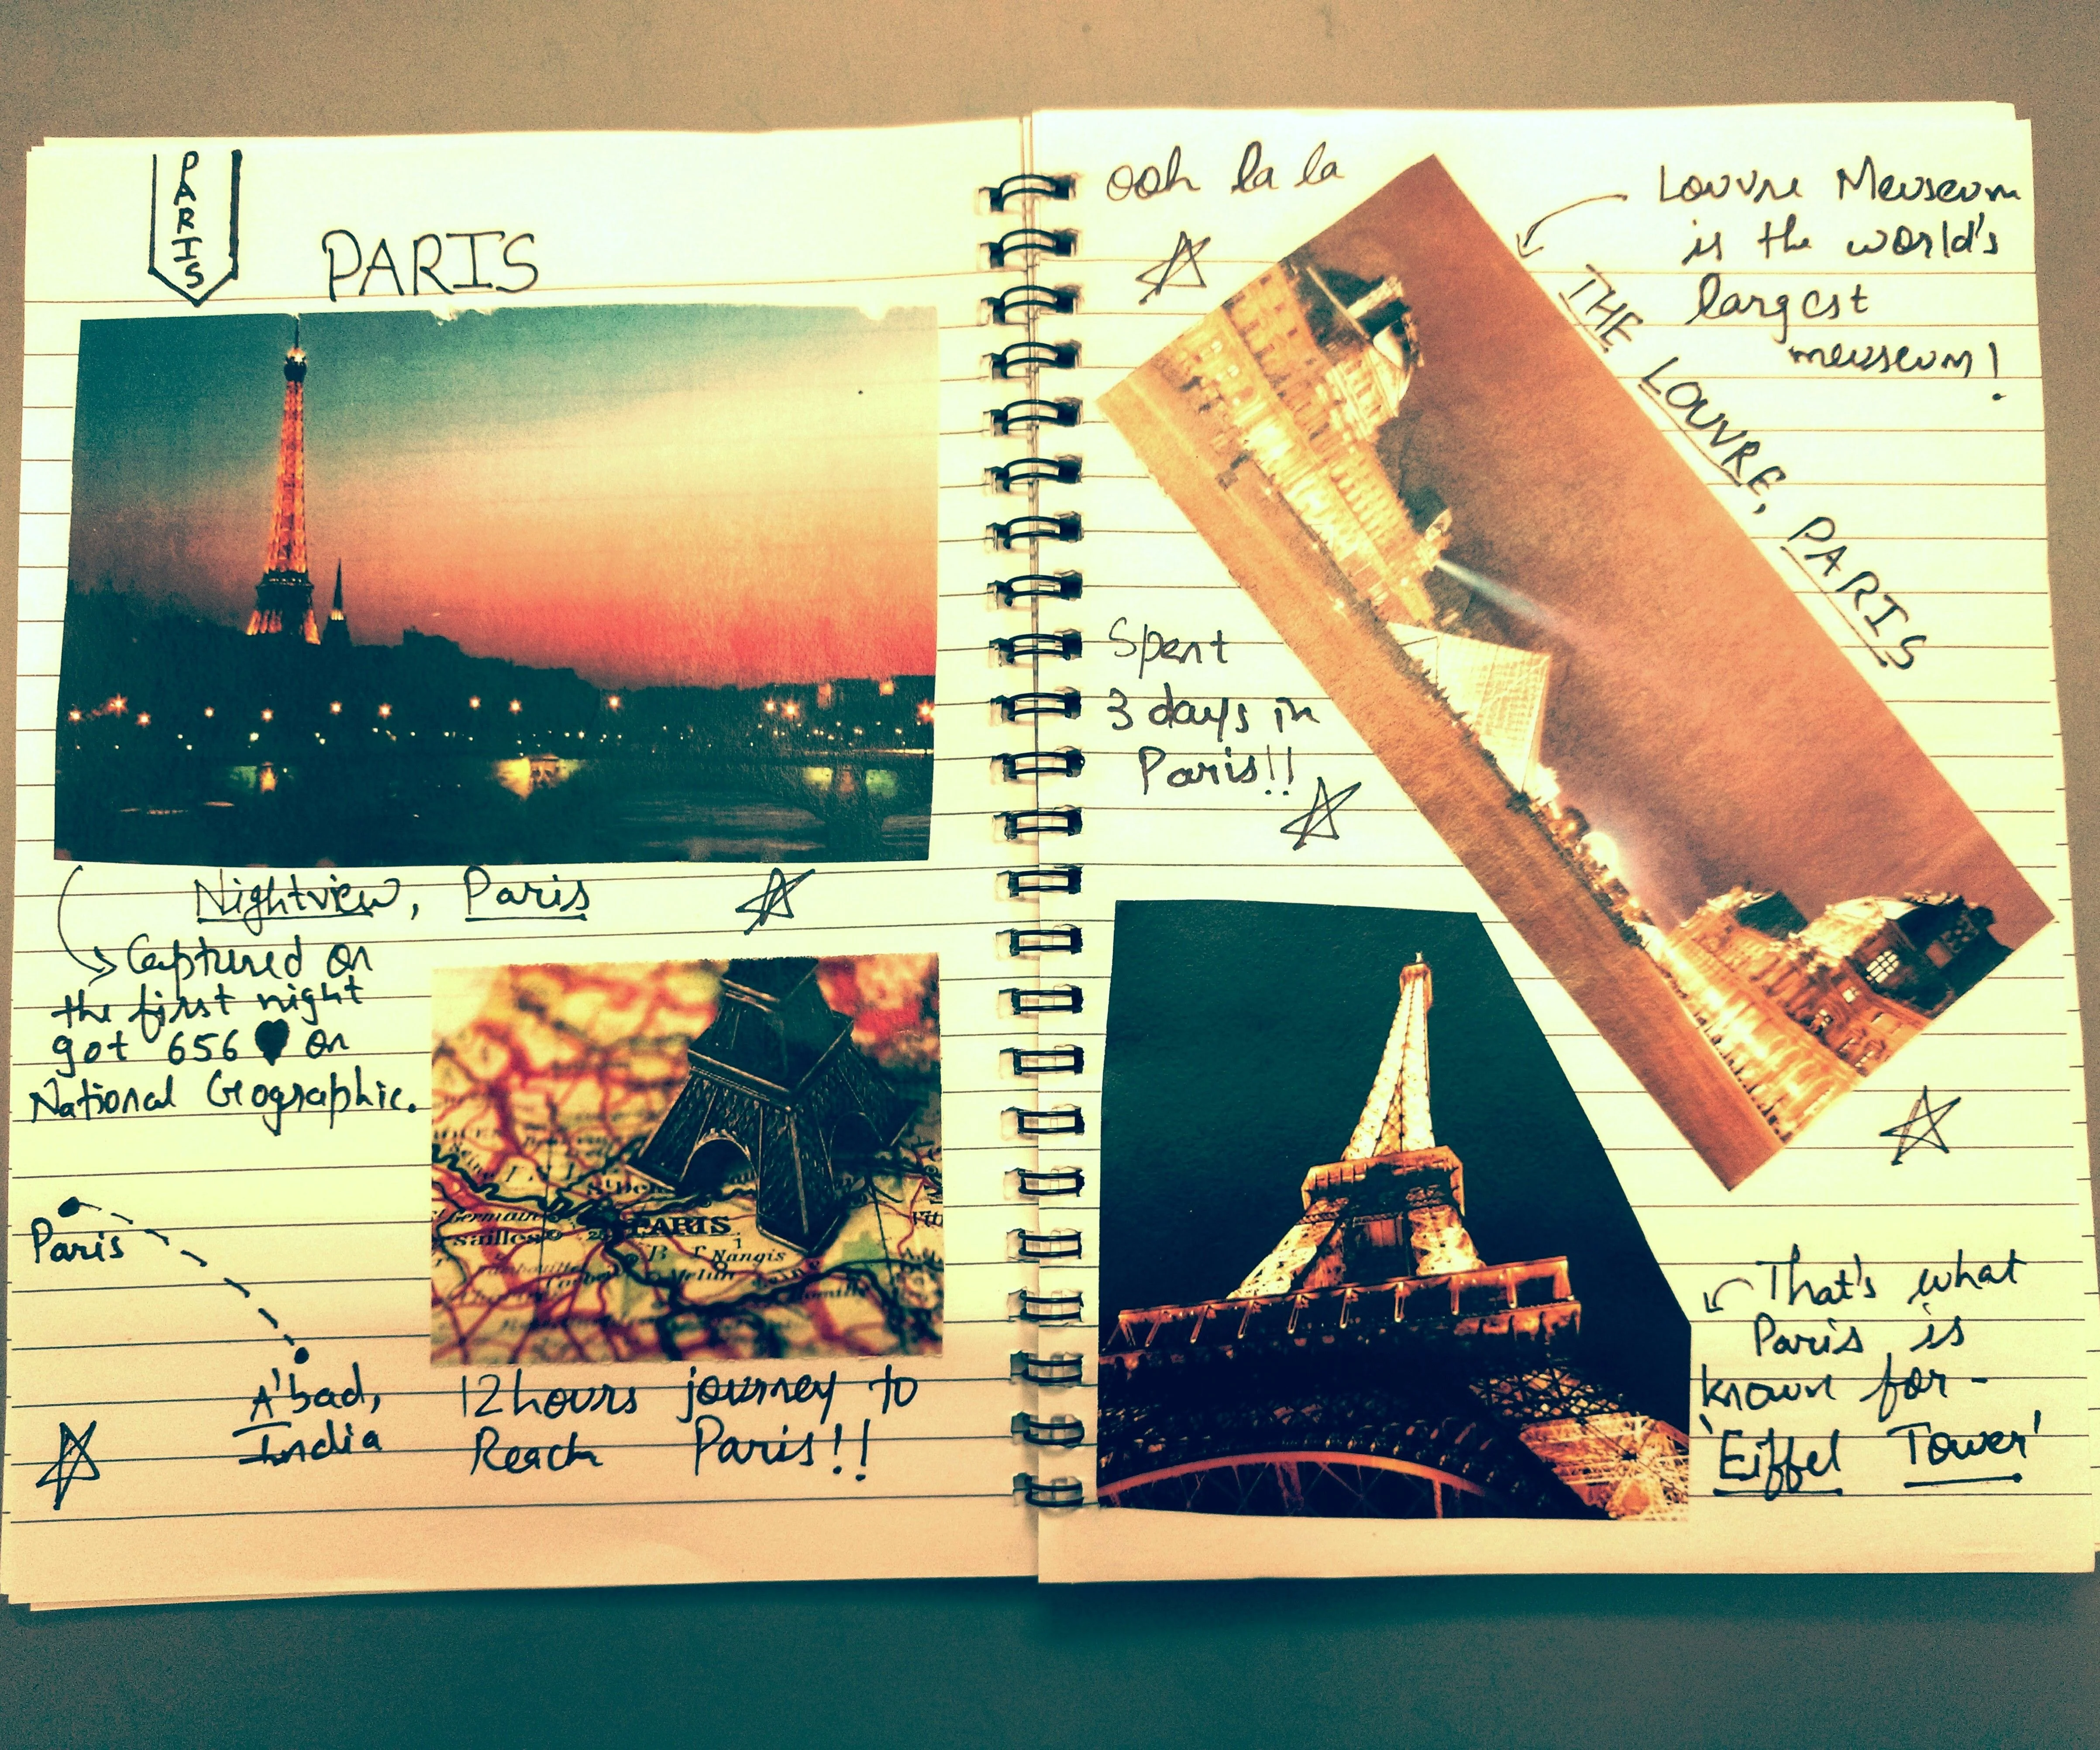 PARIS
PARIS
Nightview, Paris
Captured on
the first night
got 656 ♥ on
National Geographic.
Paris
A'bad,
India
PARIS
Nangis
Melun
12 hours journey to
Reach Paris!!
ooh la la
Louvre Meuseum
is the world's
largest
meuseum!
THE LOUVRE, PARIS
Spent
3 days in
Paris!!
That's what
Paris is
known for-
'Eiffel Tower'